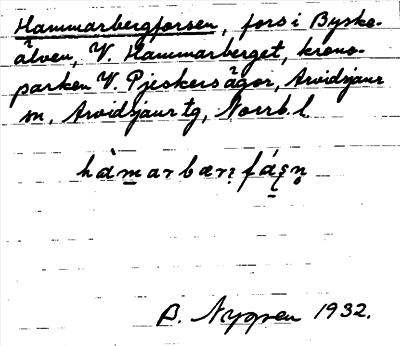 Hammarbergforsen, fors i Byske-
älven, V. Hammarberget, krono-
parken V. Pjeskers ägor, Arvidsjaur
sn, Arvidsjaur tg, Norrb. l.
B. Nygren 1932.